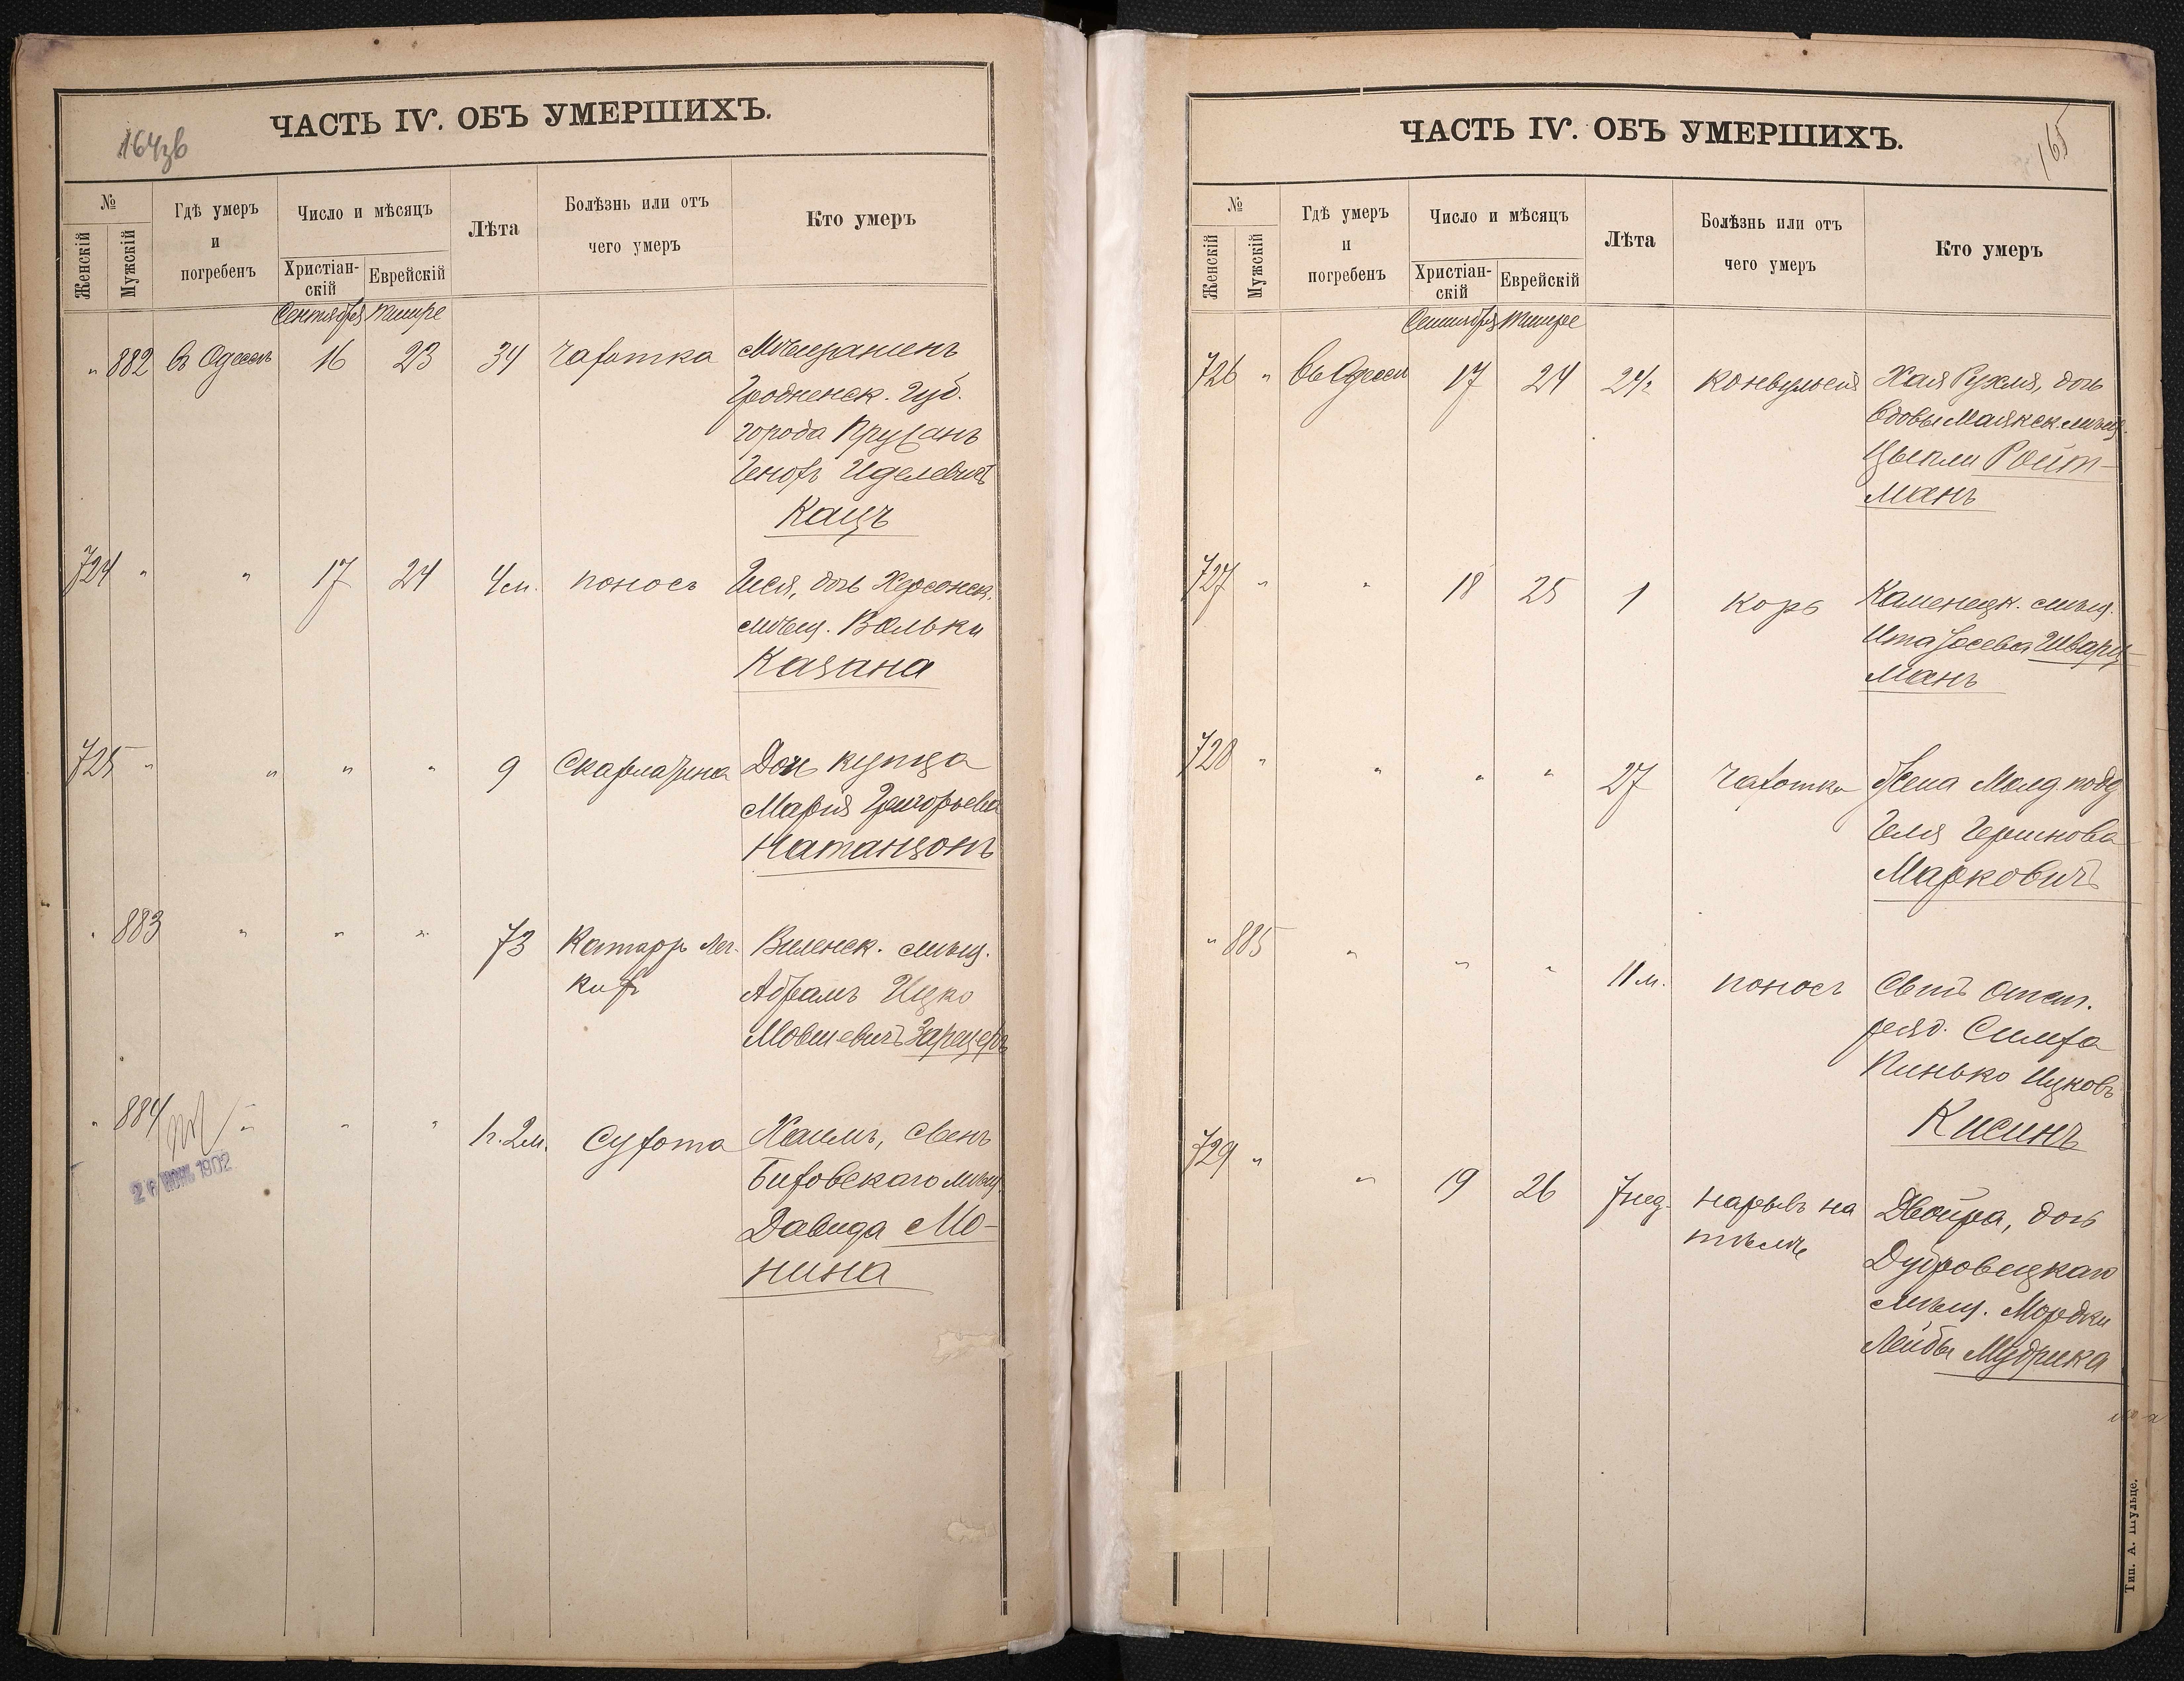 ЧАСТЬ IV. ОБЪ УМЕРШИХЪ.
164зв
№
Женскій
Мужскій
Гдѣ умеръ
и
погребенъ
Число и мѣсяцъ
Христіан-
скій
Еврейскій
Лѣта
Болѣзнь или отъ
чего умеръ
Кто умеръ
Сентября Тишре
" 882 въ Одессѣ 16 23 34 Чахотка Мѣщанинъ
Гродненск. Губ.
города Пружанъ
Иделевичъ
Кацъ
724 " " 17 24 4 м. поносъ дочь Херсонск.
мѣщ. Вольки
Казана
725 " " " " 9 Скарлатина Дочь купца
Марія Григорьева
Натанзонъ
" 883 " " " 73 Катарръ лег-
кихъ
Виленск. мѣщ.
Абрамъ Ицко
Мовшевичъ
" 884 " " " 1 г. 2 м. Сухота Хаимъ, сынъ
Давида Мо-
нина
26 НОЯ 1902
ЧАСТЬ IV. ОБЪ УМЕРШИХЪ.
165
№
Женскій
Мужскій
Гдѣ умеръ
и
погребенъ
Число и мѣсяцъ
Христіан-
скій
Еврейскій
Лѣта
Болѣзнь или отъ
чего умеръ
Кто умеръ
Сентября Тишре
726 " въ Одессѣ 17 24 2 г. конвульсія Хая Рухля, дочь
вдовы Маякск. мѣщ.
Ципли Ройт-
манъ
727 " " 18 25 1 корь Каменецк. мѣщ.
Ита Іосева Шварц-
манъ
728 " " " " 27 Чахотка Жена Молд. подд.
Гершкова
Марковичъ
" 885 " " " 11 м. поносъ Сынъ отст.
ряд. Симха
Пинько Ицковъ
Кисинъ
729 " " 19 26 7 нед. нарывъ на
тѣлѣ
Двойра, дочь
Дубровецкаго
мѣщ. Мордки
Лейбы Мудрика
Тип. А. Шульце.